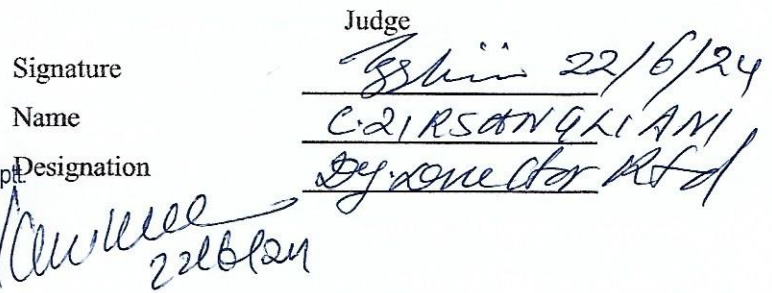 Judge
Signature 22/6/24
Name C. ZIRSANGLIANI
Designation Dy. Director Rtd
ptt.
22/6/24